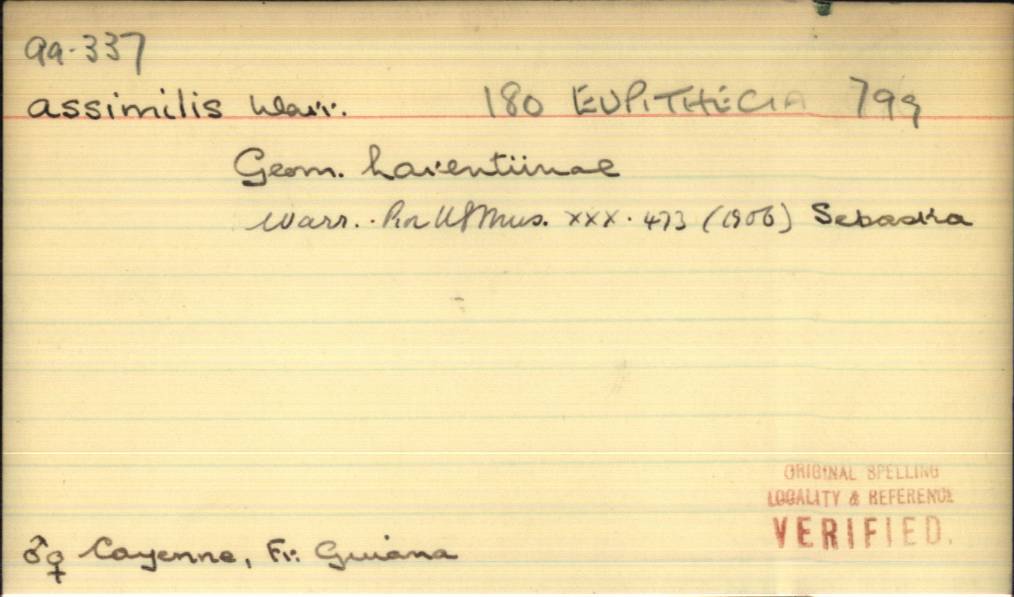 99.337
assimilis Warr. 180 EUPITHECIA 799
Geom. Larentiinae
Warr. Proc US Mus. XXX. 473 (1906) Sebastra
ORIGINAL SPELLING
LOCALITY & REFERENCE
VERIFIED.
♂♀ Cayenne, Fr. Guiana